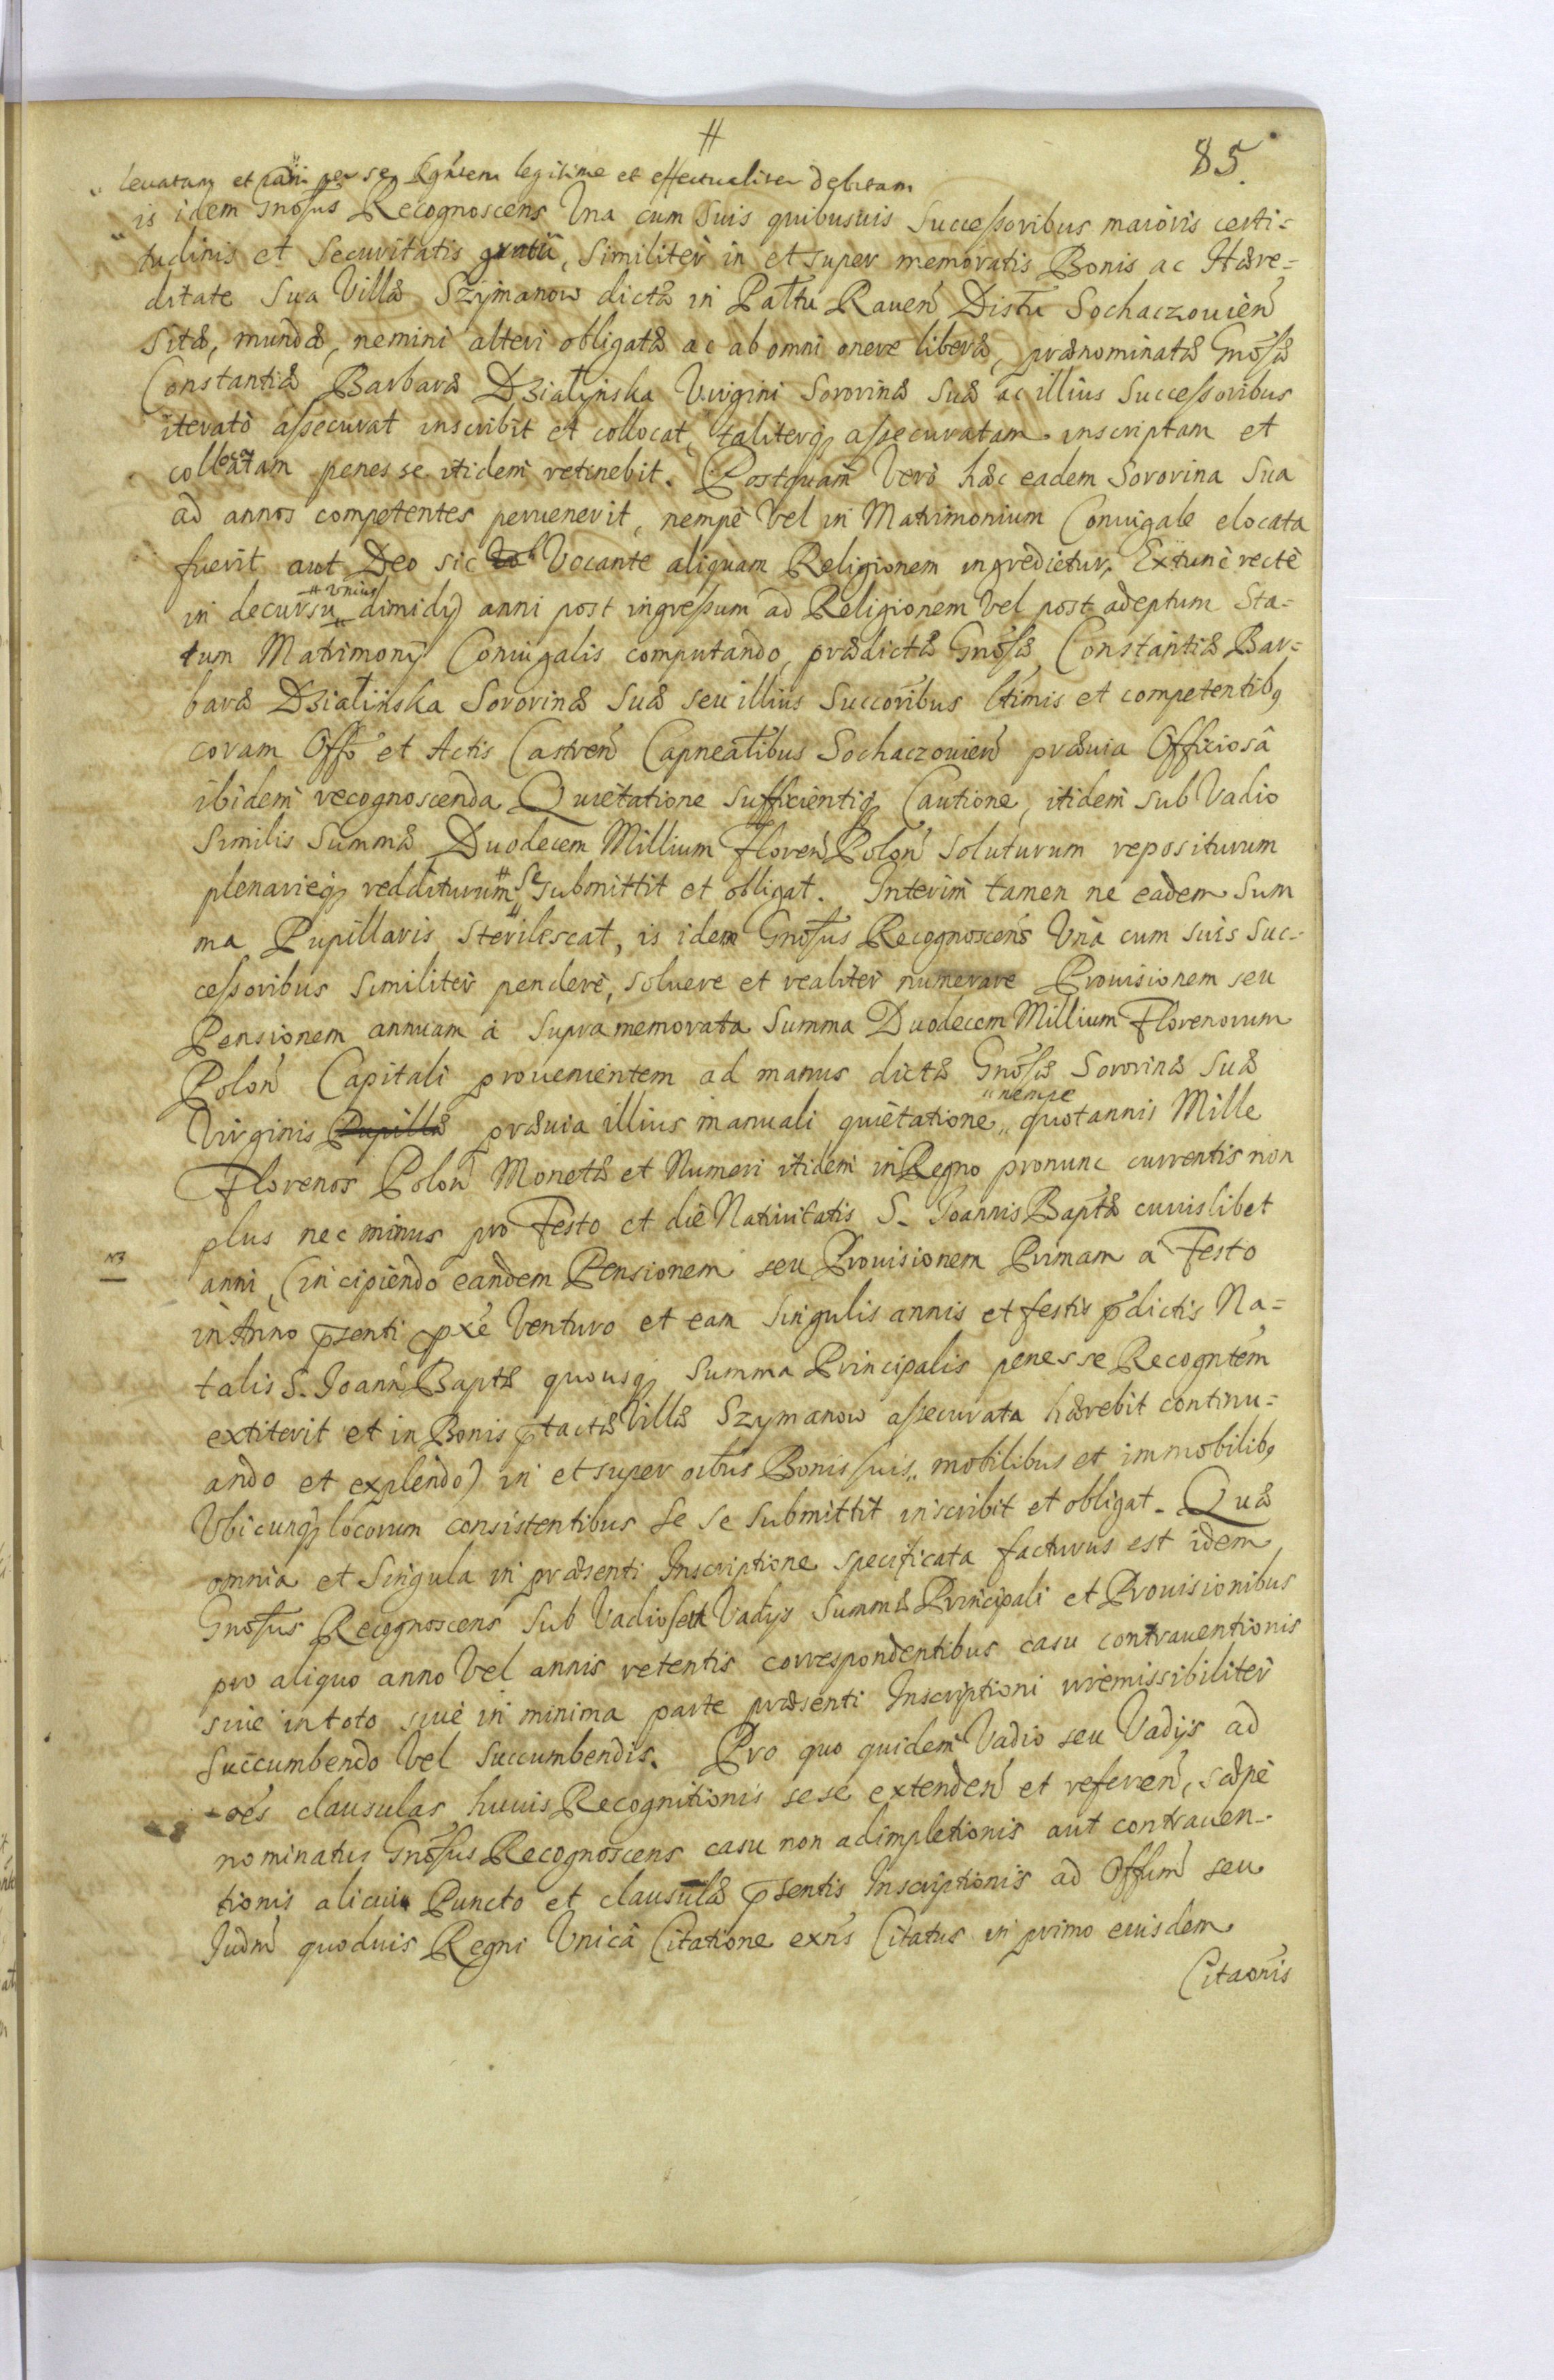 #
85.
leuatam et per se legitime et effectualiter debitam
is idem Gnosus Recognoscens Vna cum suis quibusuis Successoribus maioris certi=
tudinis et securitatis gratia, similiter in et super memoratis Bonis ac Hære=
ditate sua Villæ Szymanow dictæ in Palttu Rauen Disttu Sochaczouien
sitæ, mundæ, nemini alteri obligatæ ac ab omni onere liberæ, prænominatæ Gnosæ
Constantiæ Barbaræ Działynska Virgini Sororinæ suæ ac illius Successoribus
iterato assecurat inscribit et collocat, taliterq assecuratam inscriptam et
collocatam penes se itidem retinebit. Postquam vero hæc eadem Sororina sua
ad annos competentes peruenerit, nempe Vel in Matrimonium Coniugale elocata
fuerit aut Deo sic Vocante aliquam Religionem ingredietur, Extunc recte
in decursu # vnius dimidij anni post ingressum ad Religionem Vel post adeptum sta=
tum Matrimonij Coniugalis computando, prædictæ Gnosæ Constantiæ Bar=
baræ Działinska Sororinæ suæ seu illius Succoribus ltimis et competentibq
coram Offo et Actis Castren Capnealibus Sochaczouien præuia Officiosa
ibidem recognoscenda Quietatione sufficientiq Cautione, itidem sub Vadio
similis summæ Duodecem Millium Floren Polon soluturum repositurum
plenarieq redditurum # se submittit et obligat. Interim tamen ne eadem Sum
ma Pupillaris sterilescat, is idem Gnosus Recognoscens Vna cum suis Suc=
cessoribus similiter pendere, soluere et realiter numerare Prouisionem seu
Pensionem annuam a supra memorata Summa Duodecem Millium Florenorum
Polon Capitali prouenientem ad manus dictæ Gnosæ Sororinæ suæ
Virginis Pupillæ præuia illius manuali quietatione „ nempe quotannis Mille
Florenos Polon Monetæ et Numeri itidem in Regno pronunc currentis non
plus nec minus pro Festo et die Natiuitatis S. Joannis Baptæ cuiuslibet
anni, (incipiendo eandem Pensionem seu Prouisionem Primam a Festo
in Anno psenti pxe Venturo et eam singulis annis et festis pdictis Na=
talis S. Joann Baptæ quousq Summa Principalis penes se Recogntem
extiterit et in Bonis ptactæ Villæ Szymanow assecurata hærebit continu=
ando et explendo) in et super oibus Bonis suis „ mobilibus et immobilibq
Vbicunq locorum consistentibus se se submittit inscribit et obligat. Quæ
omnia et singula in præsenti Inscriptione specificata facturus est idem
Gnosus Recognoscens sub Vadio seu Vadijs Summæ Principali et Prouisionibus
pro aliquo anno Vel annis retentis correspondentibus casu contrauentionis
siue in toto siue in minima parte præsenti Inscriptioni irremissibiliter
succumbendo Vel succumbendis. Pro quo quidem Vadio seu Vadijs ad
oes clausulas huius Recognitionis sese extenden et referen, sæpe
nominatus Gnosus Recognoscens casu non adimpletionis aut contrauen=
tionis alicui Puncto et clausulæ psentis Inscriptionis ad Offum seu
Judm quoduis Regni Vnica Citatione exns Citatus in primo eiusdem
Citaonis